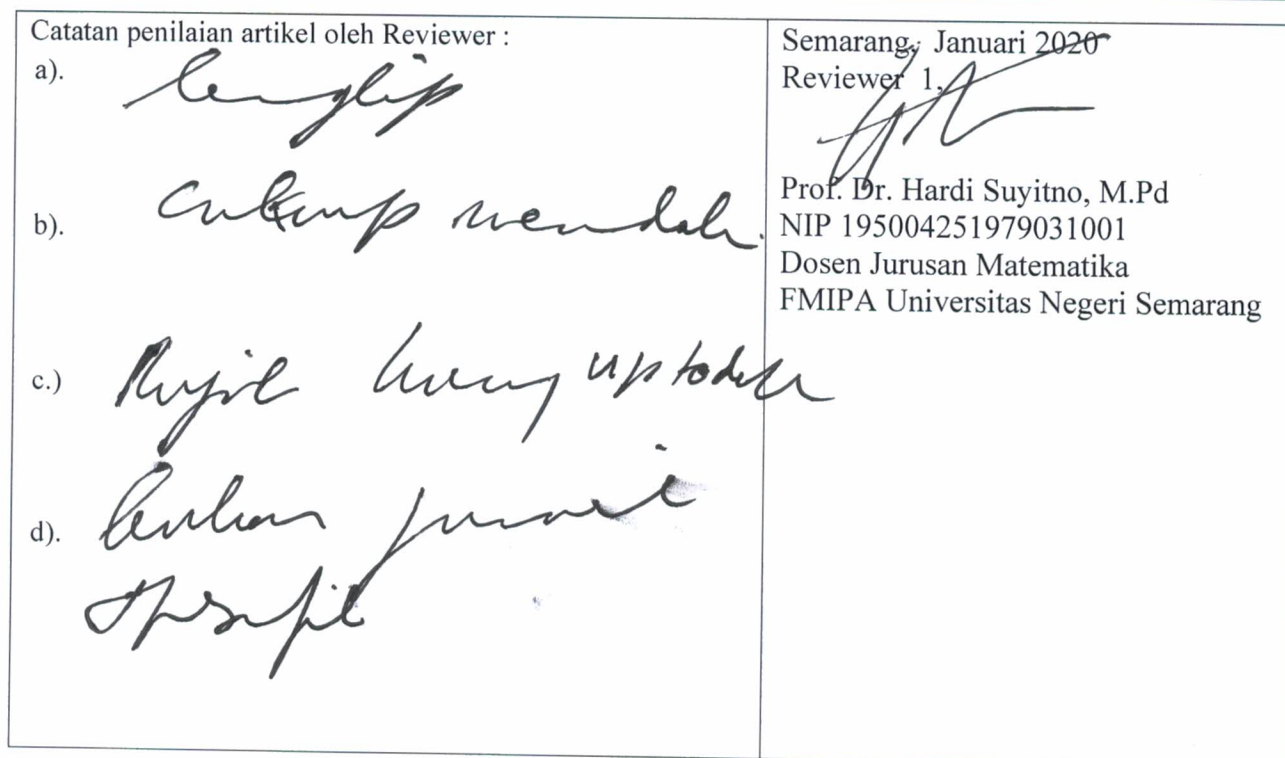 Catatan penilaian artikel oleh Reviewer :
a). lengkap
b). cukup mendalam.
c.) kurang uptodate
d). bukan
spesifik
Semarang, Januari 2020
Reviewer 1,
Prof. Dr. Hardi Suyitno, M.Pd
NIP 195004251979031001
Dosen Jurusan Matematika
FMIPA Universitas Negeri Semarang